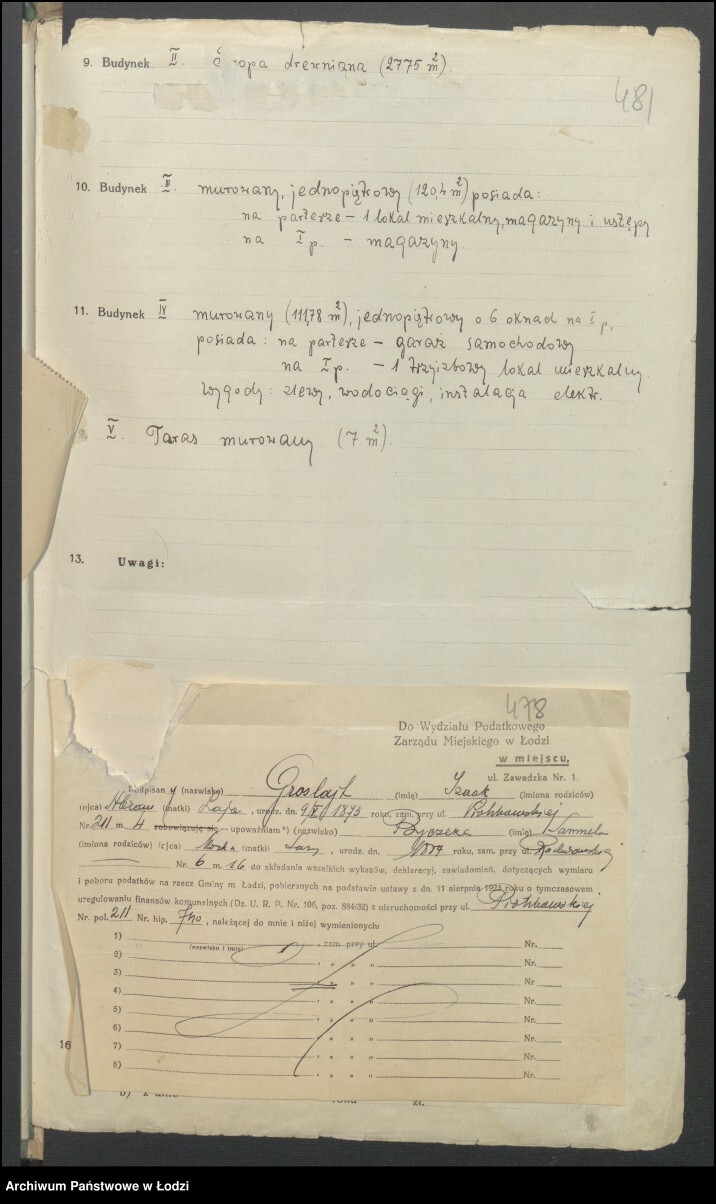 481
9. Budynek II. opa drewniana (2775 m²).
10. Budynek III. murowany, jednopiętrowy (120,4 m²) posiada:
na parterze – 1 lokal mieszkalny, magazyny i ustępy
na I p. – magazyny.
11. Budynek IV murowany (111,78 m²), jednopiętrowy o 6 oknach na I p,
posiada: na parterze – garaż samochodowy
na I p. – 1 trzyizbowy lokal mieszkalny.
wygody: zlewy, wodociągi, instalacja elektr.
V. Taras murowany (7 m²).
13. Uwagi:
478
Do Wydziału Podatkowego
Zarządu Miejskiego w Łodzi
w miejscu,
ul. Zawadzka Nr. 1.
Podpisany (nazwisko) Groslajt (imię) Izaak (imiona rodziców)
(ojca) Abram (matki) Łaja, urodz. dn. 1873 roku, zam. przy ul. Piotrkowskiej
Nr. 211 m. 4 zobowiązuję się — upoważniam *) (nazwisko) (imię)
(imiona rodziców) (ojca) (matki) Sary, urodz. dn. roku, zam. przy ul. Radwańskiej
Nr. 6 m. 16 do składania wszelkich wykazów, deklaracyj, zawiadomień, dotyczących wymiaru
i poboru podatków na rzecz Gminy m. Łodzi, pobieranych na podstawie ustawy z dn. 11 sierpnia 1923 roku o tymczasowem
uregulowaniu finansów komunalnych (Dz. U. R. P. Nr. 106, poz. 884/32) z nieruchomości przy ul. Piotrkowskiej
Nr. pol. 211 Nr. hip. 740, należącej do mnie i niżej wymienionych:
1) , zam. przy ul. Nr.
(nazwiska i imię)
2) , „ „ „ Nr.
3) , „ „ „ Nr.
4) , „ „ „ Nr.
5) , „ „ „ Nr.
6) , „ „ „ Nr.
7) , „ „ „ Nr.
8) , „ „ „ Nr.
16
zł.
Archiwum Państwowe w Łodzi